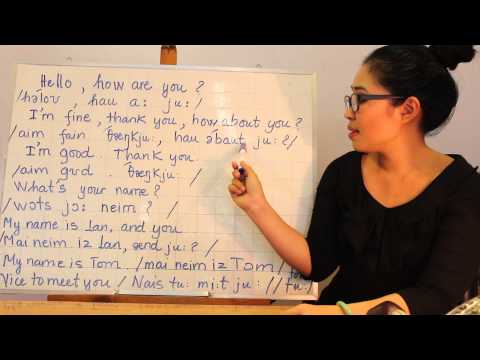 Hello, how are you?
/həloʊ, hau a: ju:/
I'm fine, thank you, how about you?
/aim fain θæŋkju:, hau əbaut ju:?/
I'm good. Thank you.
/aim gʊd. θæŋkju:/
What's your name?
/wɔts jɔ: neim? /
My name is Lan, and you
/Mai neim iz Lan, ænd ju:? /
My name is Tom. /mai neim iz Tɔm/
Nice to meet you / Nais tu: mi:t ju: //tu:/